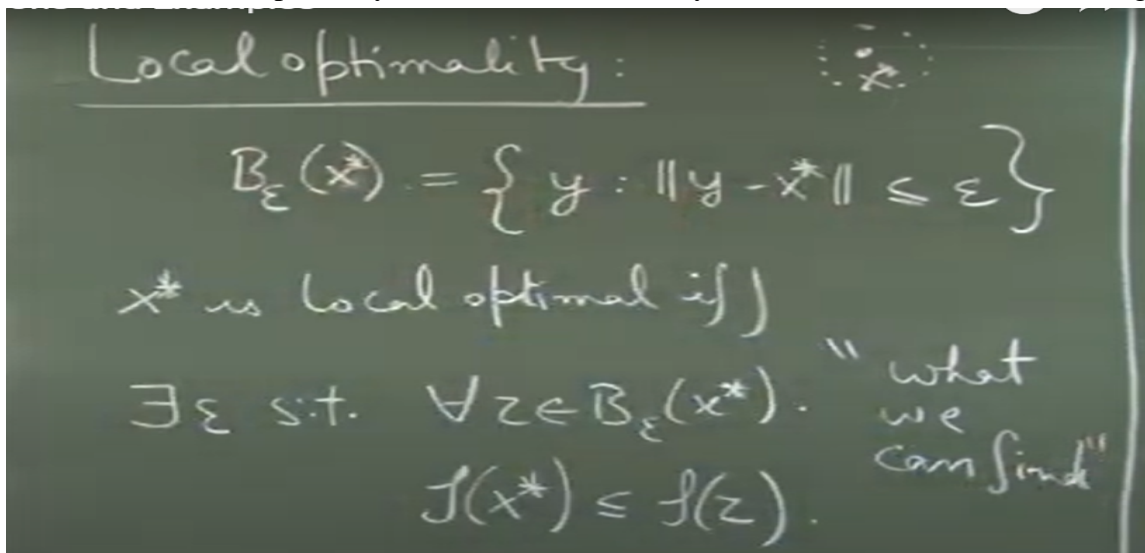 Local optimality:
x*
B_ε(x*) = { y : ||y - x*|| ≤ ε }
x* is local optimal iff
∃ε s.t. ∀z∈B_ε(x*).
"what
we
can find"
f(x*) ≤ f(z).